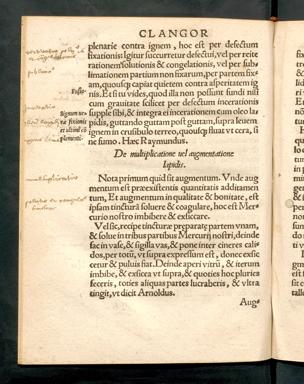 CLANGOR
plenarie contra ignem, hoc est per defectum
fixationis: Igitur succurretur defectui, vel per reite
rationem solutionis & congelationis, vel per sub
limationem partium non fixarum, per partem fix-
am, quousque capiat quietem contra asperitatem ig
nis. Et si tu vides, quod illa non possunt fundi nisi
cum grauitate scilicet per defectum incerationis
supple sibi, & integra eius incerationem cum oleo la
pidis, guttando guttam post guttam, supra leuem
ignem in crusibulo terreo, quousque fluat vt cera, si
ne fumo. Hæc Raymundus.
Fusio.
Signum ue
ræ fixionis
et ultimi cō
plementi.
De multiplicatione uel augmentatione
lapidis.
Nota primum quid sit augmentum. Vnde aug
mentum est præexistentis quantitatis additamen
tum, Et augmentum in qualitate & bonitate, est
ipsam tincturā soluere & coagulare, hoc est Mer-
curio nostro imbibere & exsiccare.
Vel sic, recipe tincturæ præparatæ partem vnam,
& solue in tribus partibus Mercurij nostri, deinde
fac in vase, & sigilla vas, & pone inter cineres cali-
dos, per totū, vt supra expressum est, donec exsic
cetur & puluis fiat. Deinde aperi vitrū, & iterum
imbibe, & exsicca vt supra, & quoties hoc pluries
feceris, toties aliquas partes lucraberis, & vltra
tingit, vt dicit Arnoldus.
Aug-